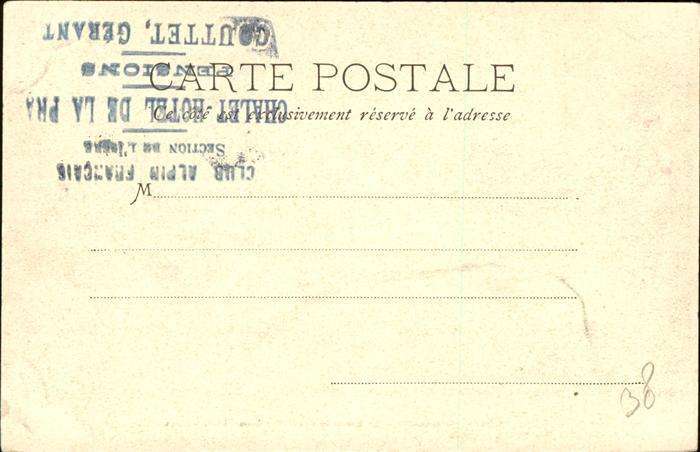 CARTE POSTALE
Ce côté est exclusivement réservé à l'adresse
M
CLUB ALPIN FRANÇAIS
SECTION DE L'ISÈRE
CHALET-HOTEL DE LA PRA
PENSIONS
GOUTTET, GÉRANT
38